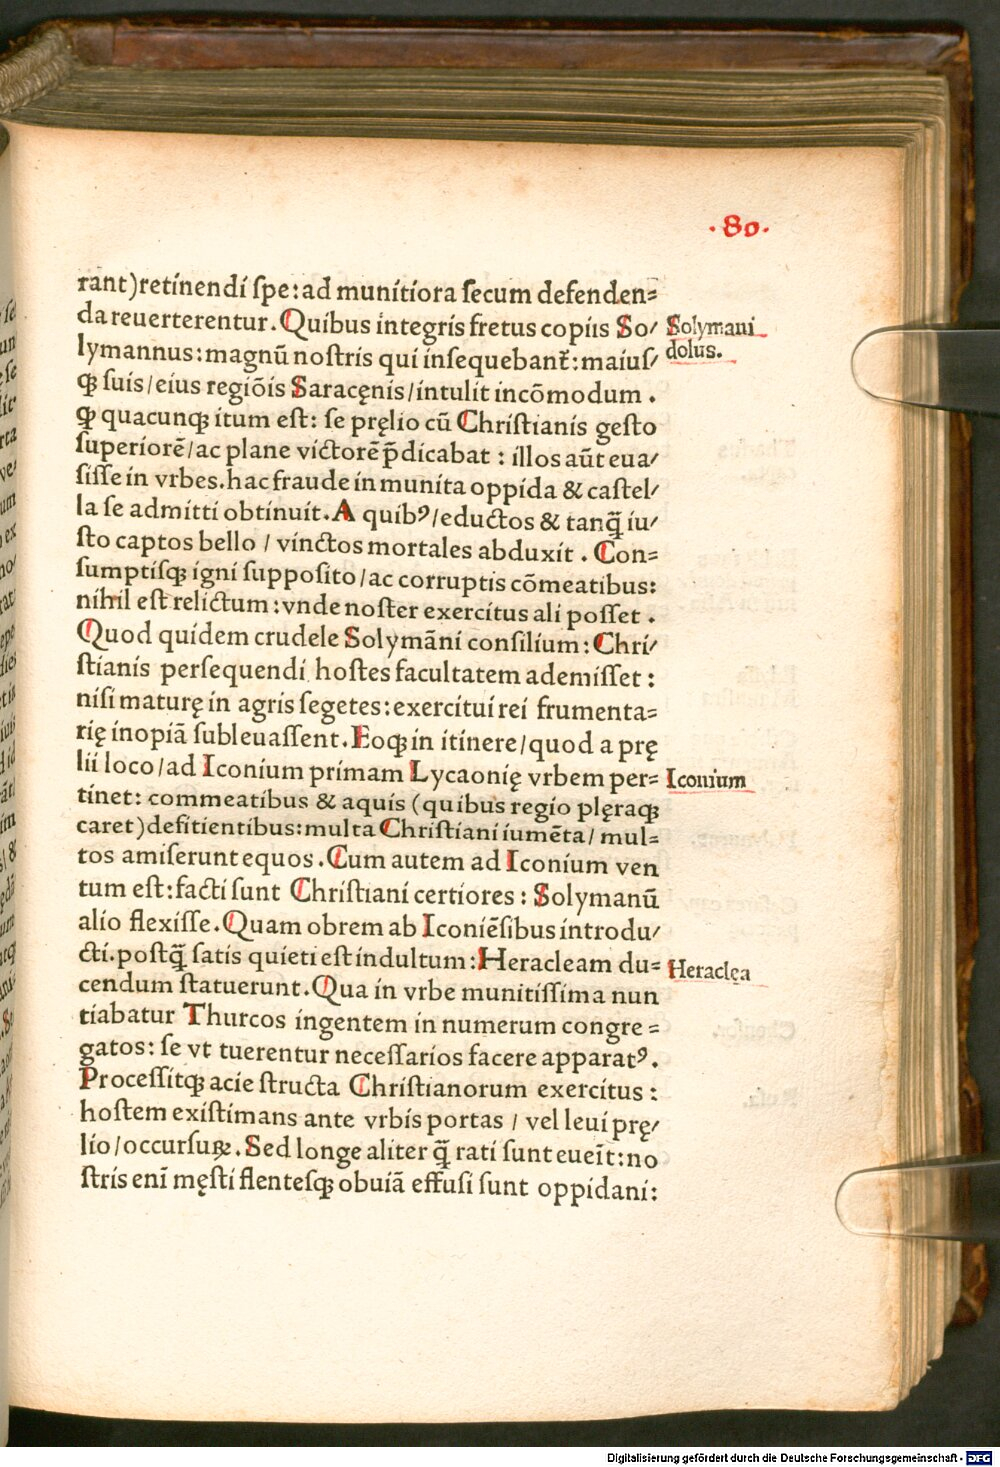 ·80·
rant)retinendi ſpe:ad munitiora ſecum defenden⸗
da reuerterentur.Quibus integris fretus copiis So/
Solymani
dolus.
lymannus:magnũ noſtris qui inſequebant᷑:maiuſ/
qꝫ ſuis/eius regiõis Saracęnis/intulit incõmodum .
qꝫ quacunqꝫ itum eſt: ſe pręlio cũ Chriſtianis geſto
ſuperiorẽ/ac plane victorẽ p̄dicabat : illos aũt eua/
ſiſſe in vrbes.hac fraude in munita oppida & caſtel/
la ſe admitti obtinuit.A quibꝰ/eductos & tanq̃ iu/
ſto captos bello / vinctos mortales abduxit . Con⸗
ſumptiſqꝫ igni ſuppoſito/ac corruptis cõmeatibus:
nihil eſt relictum:vnde noſter exercitus ali poſſet .
Quod quidem crudele Solymãni conſilium:Chri/
ſtianis perſequendi hoſtes facultatem ademiſſet :
niſi maturę in agris ſegetes:exercitui rei frumenta⸗
rię inopiã ſubleuaſſent.Eoqꝫ in itinere/quod a prę
lii loco/ad Iconium primam Lycaonię vrbem per⸗
Iconium
tinet: commeatibus & aquis (quibus regio plęraqꝫ
caret)defitientibus:multa Chriſtiani iumẽta/ mul⸗
tos amiſerunt equos.Cum autem ad Iconium ven
tum eſt:facti ſunt Chriſtiani certiores : Solymanũ
alio flexiſſe.Quam obrem ab Iconiẽſibus introdu/
cti.poſtq̃ ſatis quieti eſt indultum:Heracleam du⸗
Heraclęa
cendum ſtatuerunt.Qua in vrbe munitiſſima nun
tiabatur Thurcos ingentem in numerum congre ⸗
gatos: ſe vt tuerentur neceſſarios facere apparatꝰ.
Proceſſitqꝫ acie ſtructa Chriſtianorum exercitus :
hoſtem exiſtimans ante vrbis portas / vel leui prę/
lio/occurſuꝝ.Sed longe aliter q̃ rati ſunt eueĩt:no
ſtris eni᷑ męſti flenteſqꝫ obuiã effuſi ſunt oppidani:
Digitalisierung gefördert durch die Deutsche Forschungsgemeinschaft - DFG